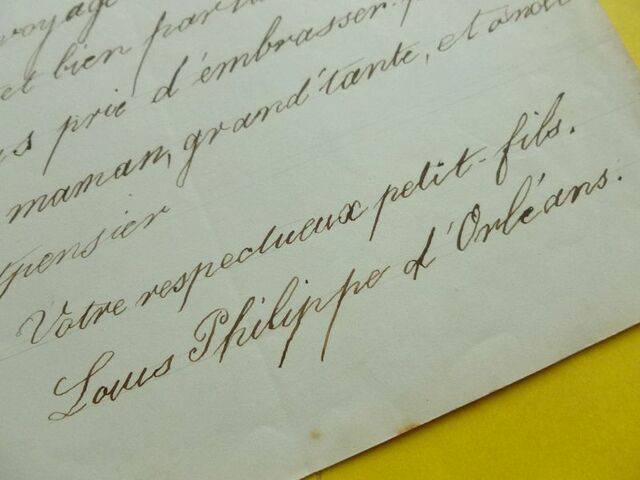 voyage
et bien
prie d'embrasser
maman, grand'tante, et
pensier
Votre respectueux petit-fils.
Louis Philippe d'Orléans.